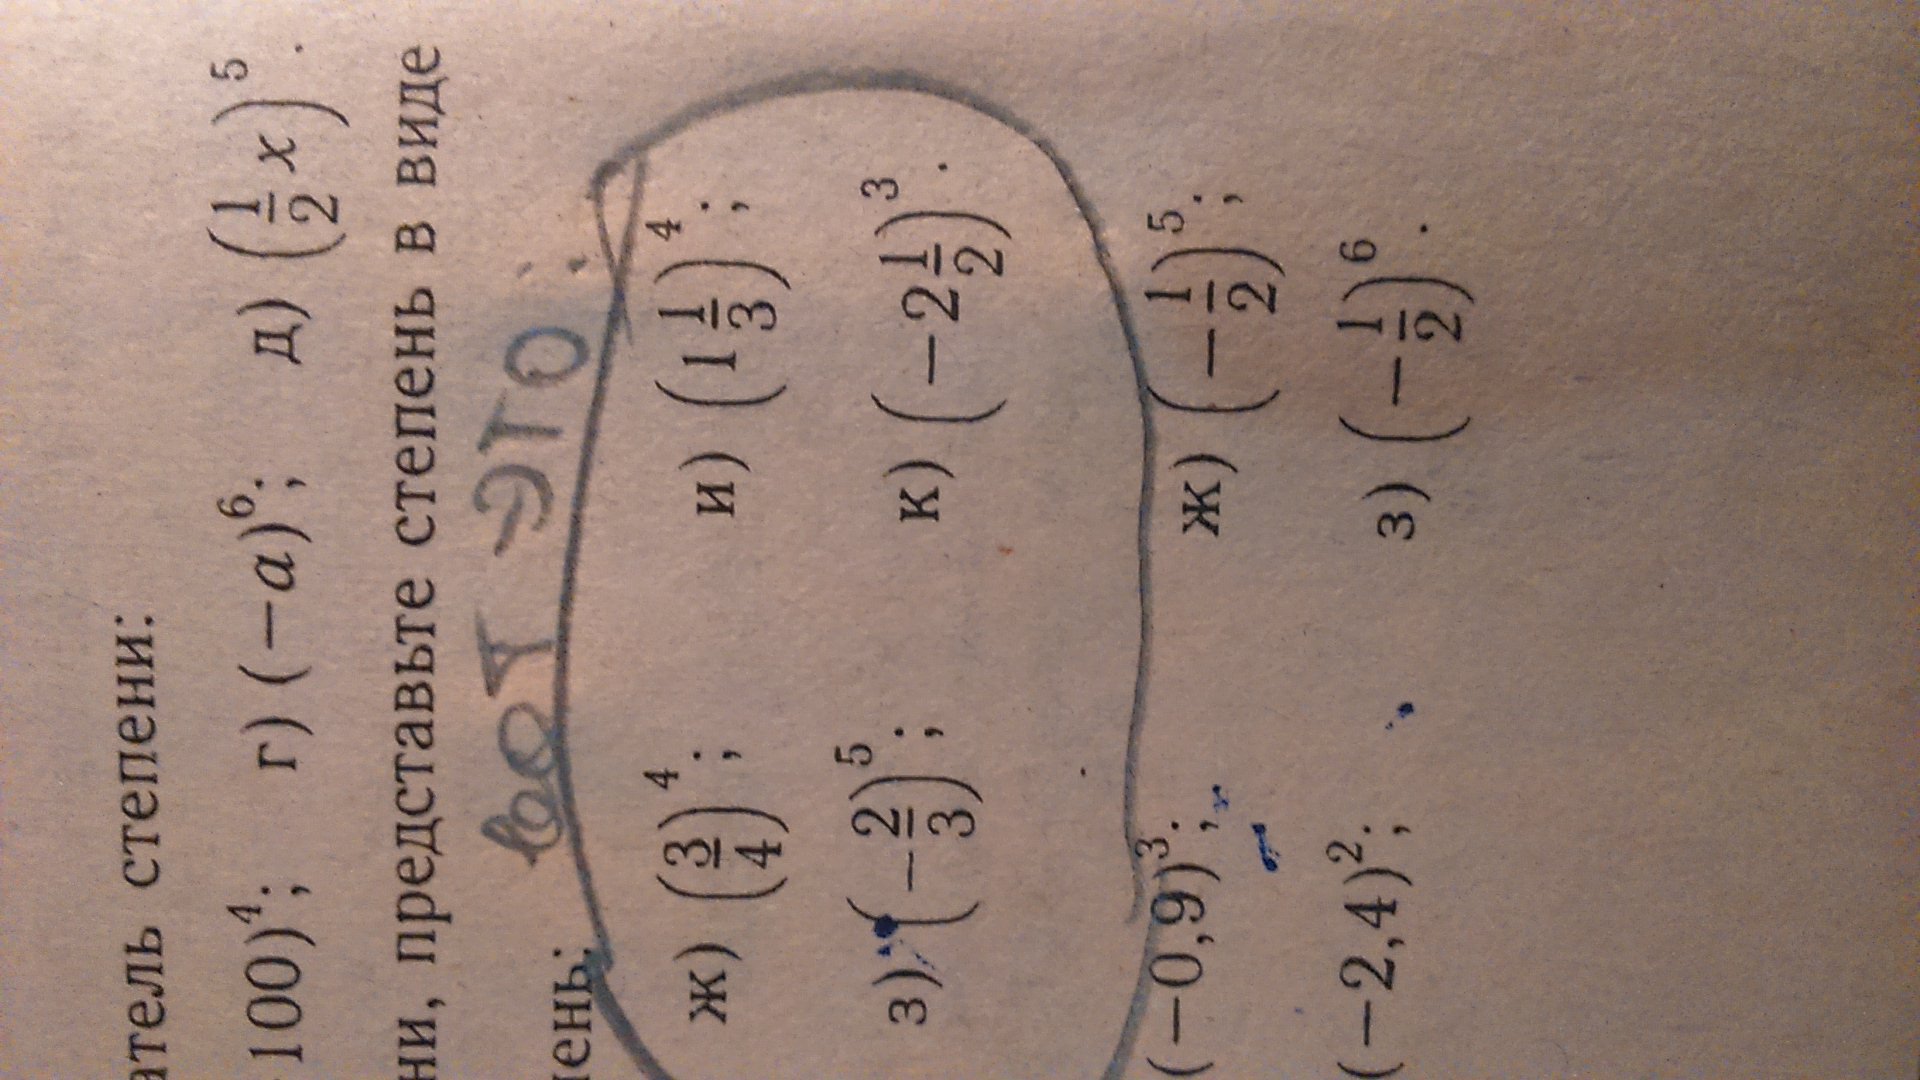 атель степени:
100)⁴; г) (−a)⁶; д) (1/2 x)⁵.
ни, представьте степень в виде
вот это:
пень:
ж) (3/4)⁴; и) (1 1/3)⁴;
з) (−2/3)⁵; к) (−2 1/2)³.
(−0,9)³; ж) (−1/2)⁵;
(−2,4)²; з) (−1/2)⁶.